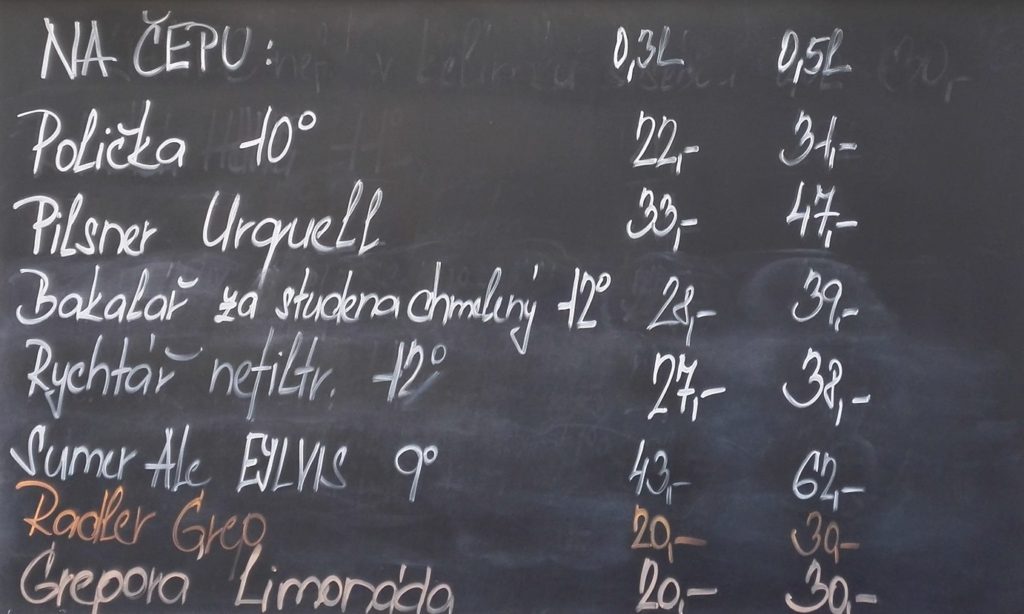 NA ČEPU: 0,3L 0,5L
Polička 10° 22,- 31,-
Pilsner Urquell 33,- 47,-
Bakalář za studena chmelený 12° 28,- 39,-
Rychtář nefiltr. 12° 27,- 38,-
Sumer Ale EJLVIS 9° 43,- 62,-
Radler Grep 20,- 30,-
Grepova Limonáda 20,- 30,-